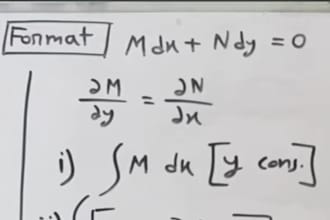 Format Mdx + Ndy = 0
∂M/∂y = ∂N/∂x
i) ∫M dx [y cons.]